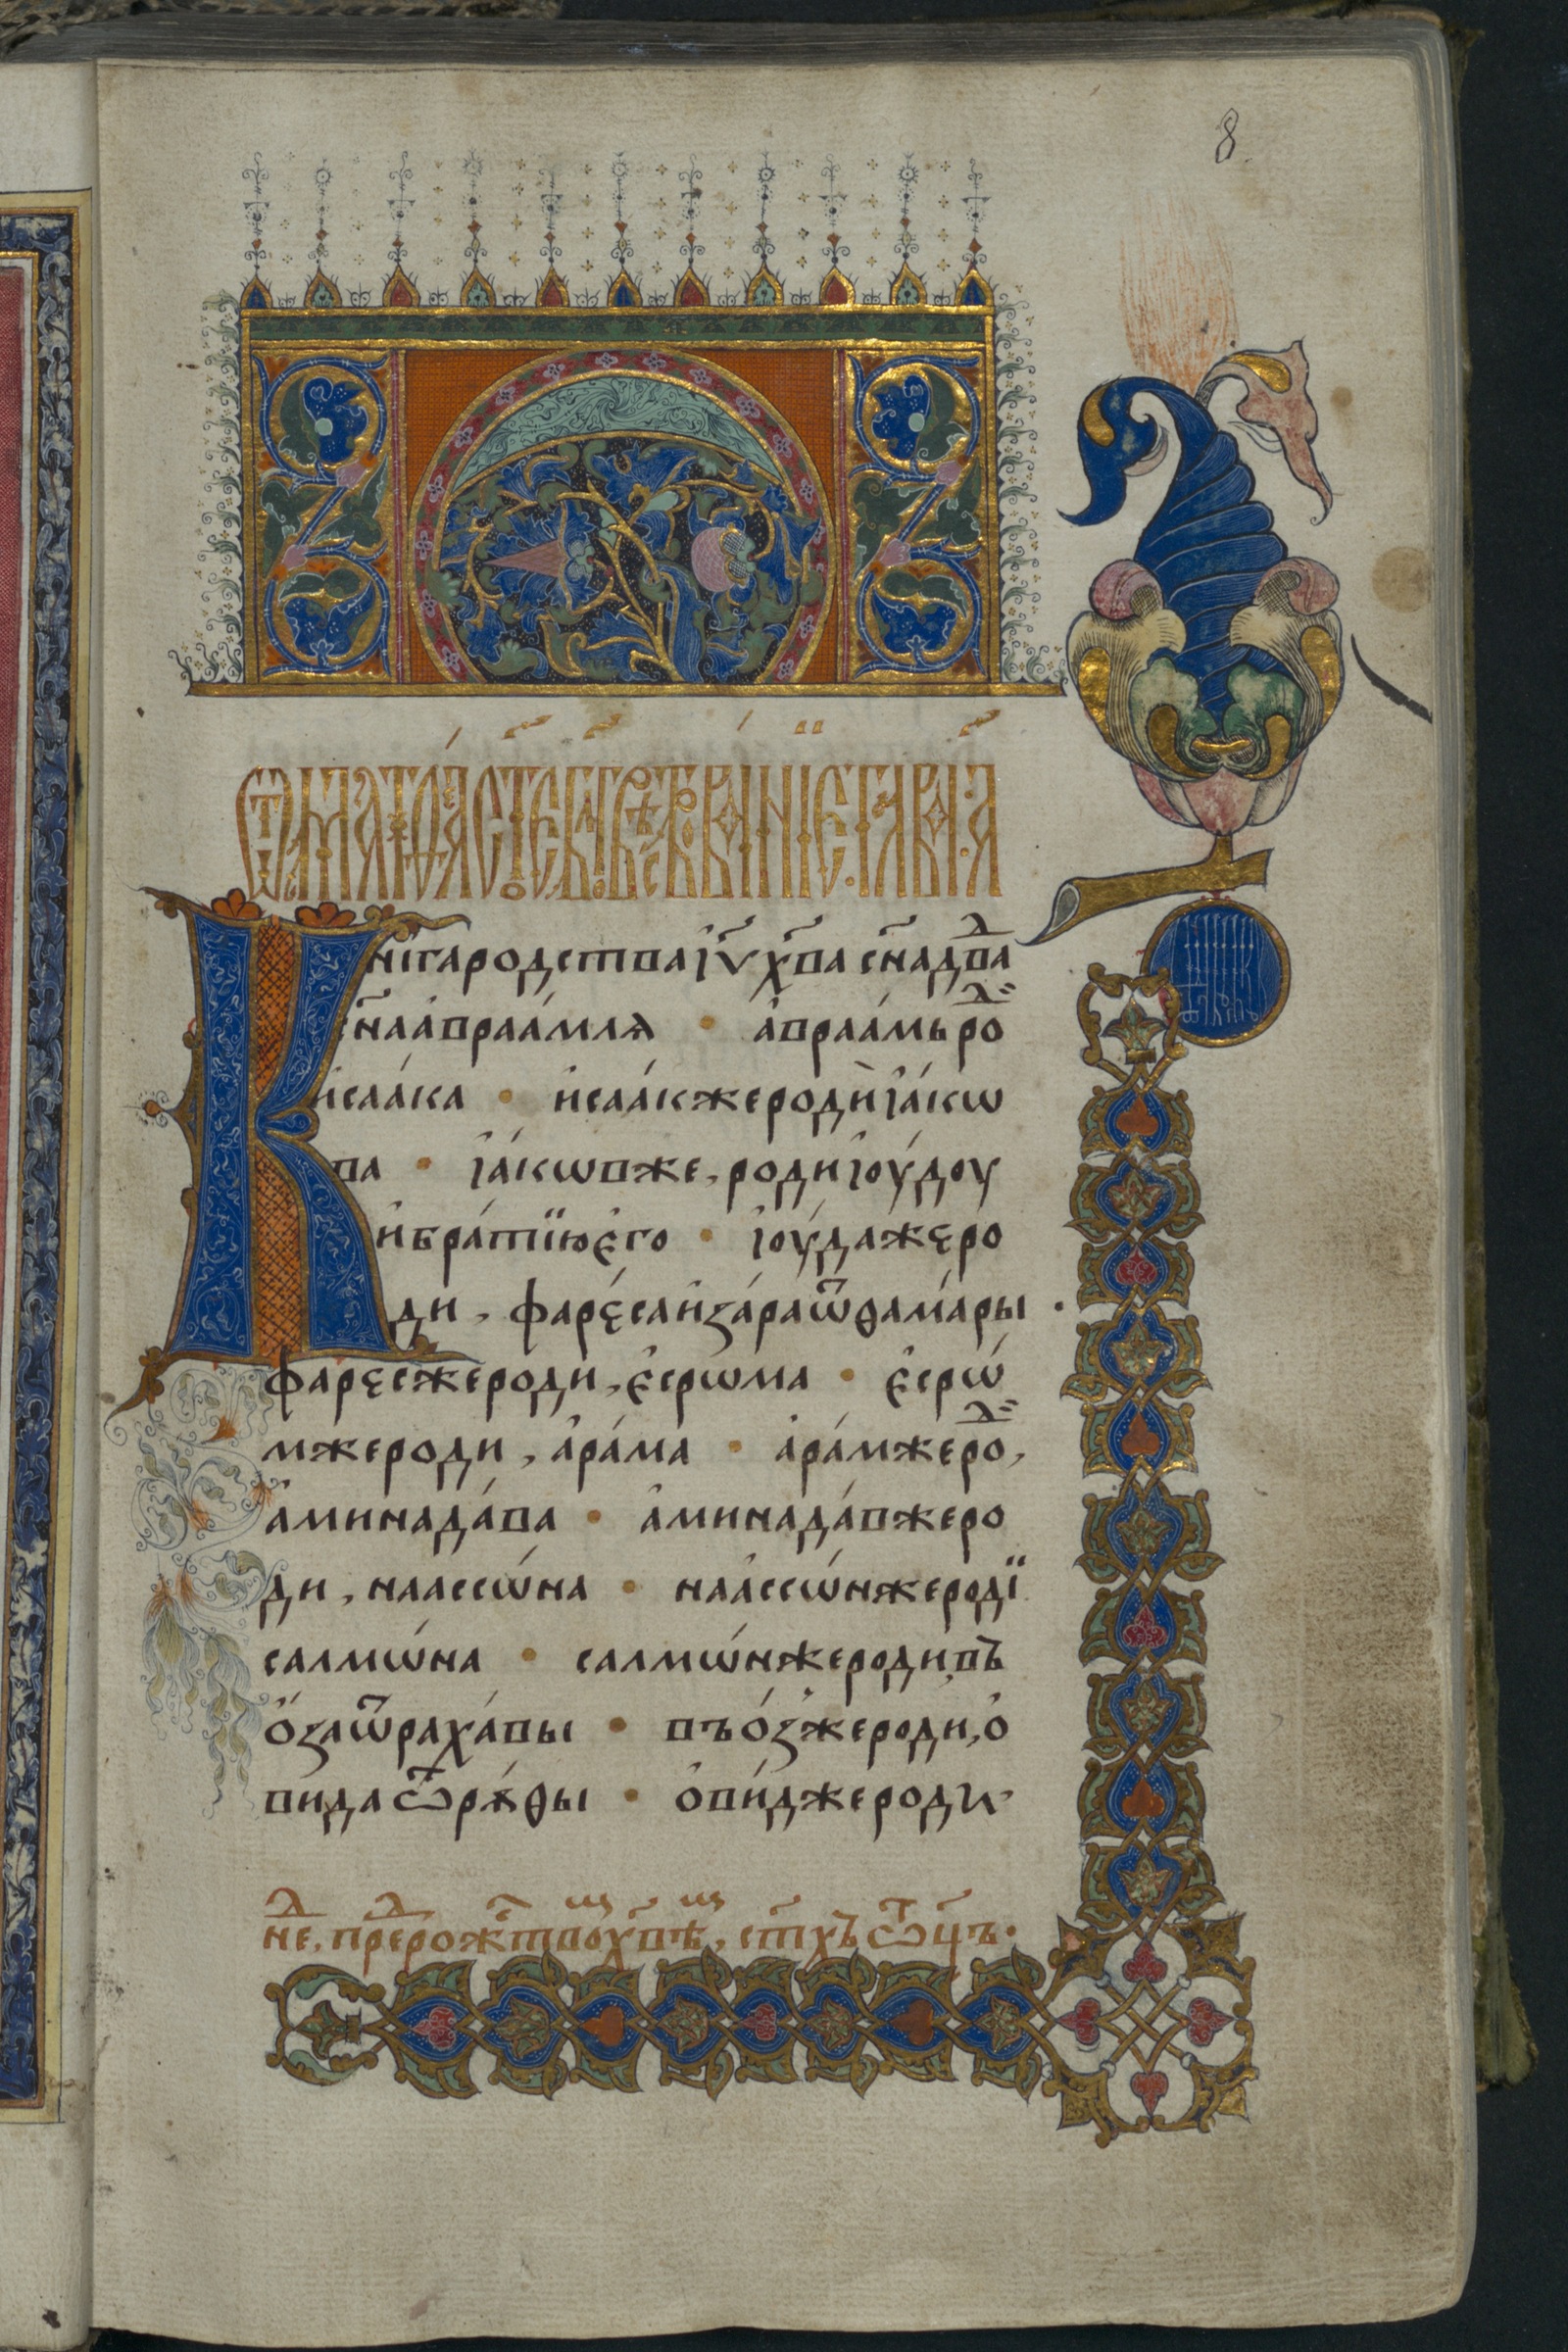 8
Ѿ матѳеꙗ ст҃ое бл҃говѣствованїе. глава, а҃
Книга родства і҆у҃ х҃ва сн҃а дв҃два
сн҃а а҆враа́млѧ · а҆враа́мь роⷣ
и҆саа́ка · и҆саа́к же родѝ і҆а́кѡ
ва · і҆а́кѡв же, роди і҆оу́доу
и҆ бра́тїю є҆го · і҆оу́да же ро
ди, фаре́са и҆ за́ра ѿ ѳама́ры ·
фарес же роди, є҆срѡма · є҆срѡ́
м же роди, а҆ра́ма · а҆ра́м же роⷣ,
а҆минада́ва · а҆минада́в же ро
ди, наассѡ́на · наа҆ссѡ́н же родї
салмѡ́на · салмѡ́н же роди, въ
о҆́за ѿ раха́вы · въо́з же роди, о҆
вида ѿ рꙋ́ѳы · о҆ви́д же роди
нⷣе, преⷣ рожⷭ҇твоⷨ х҃вѣⷨ, ст҃хъ ѡ҃ц҃ъ·